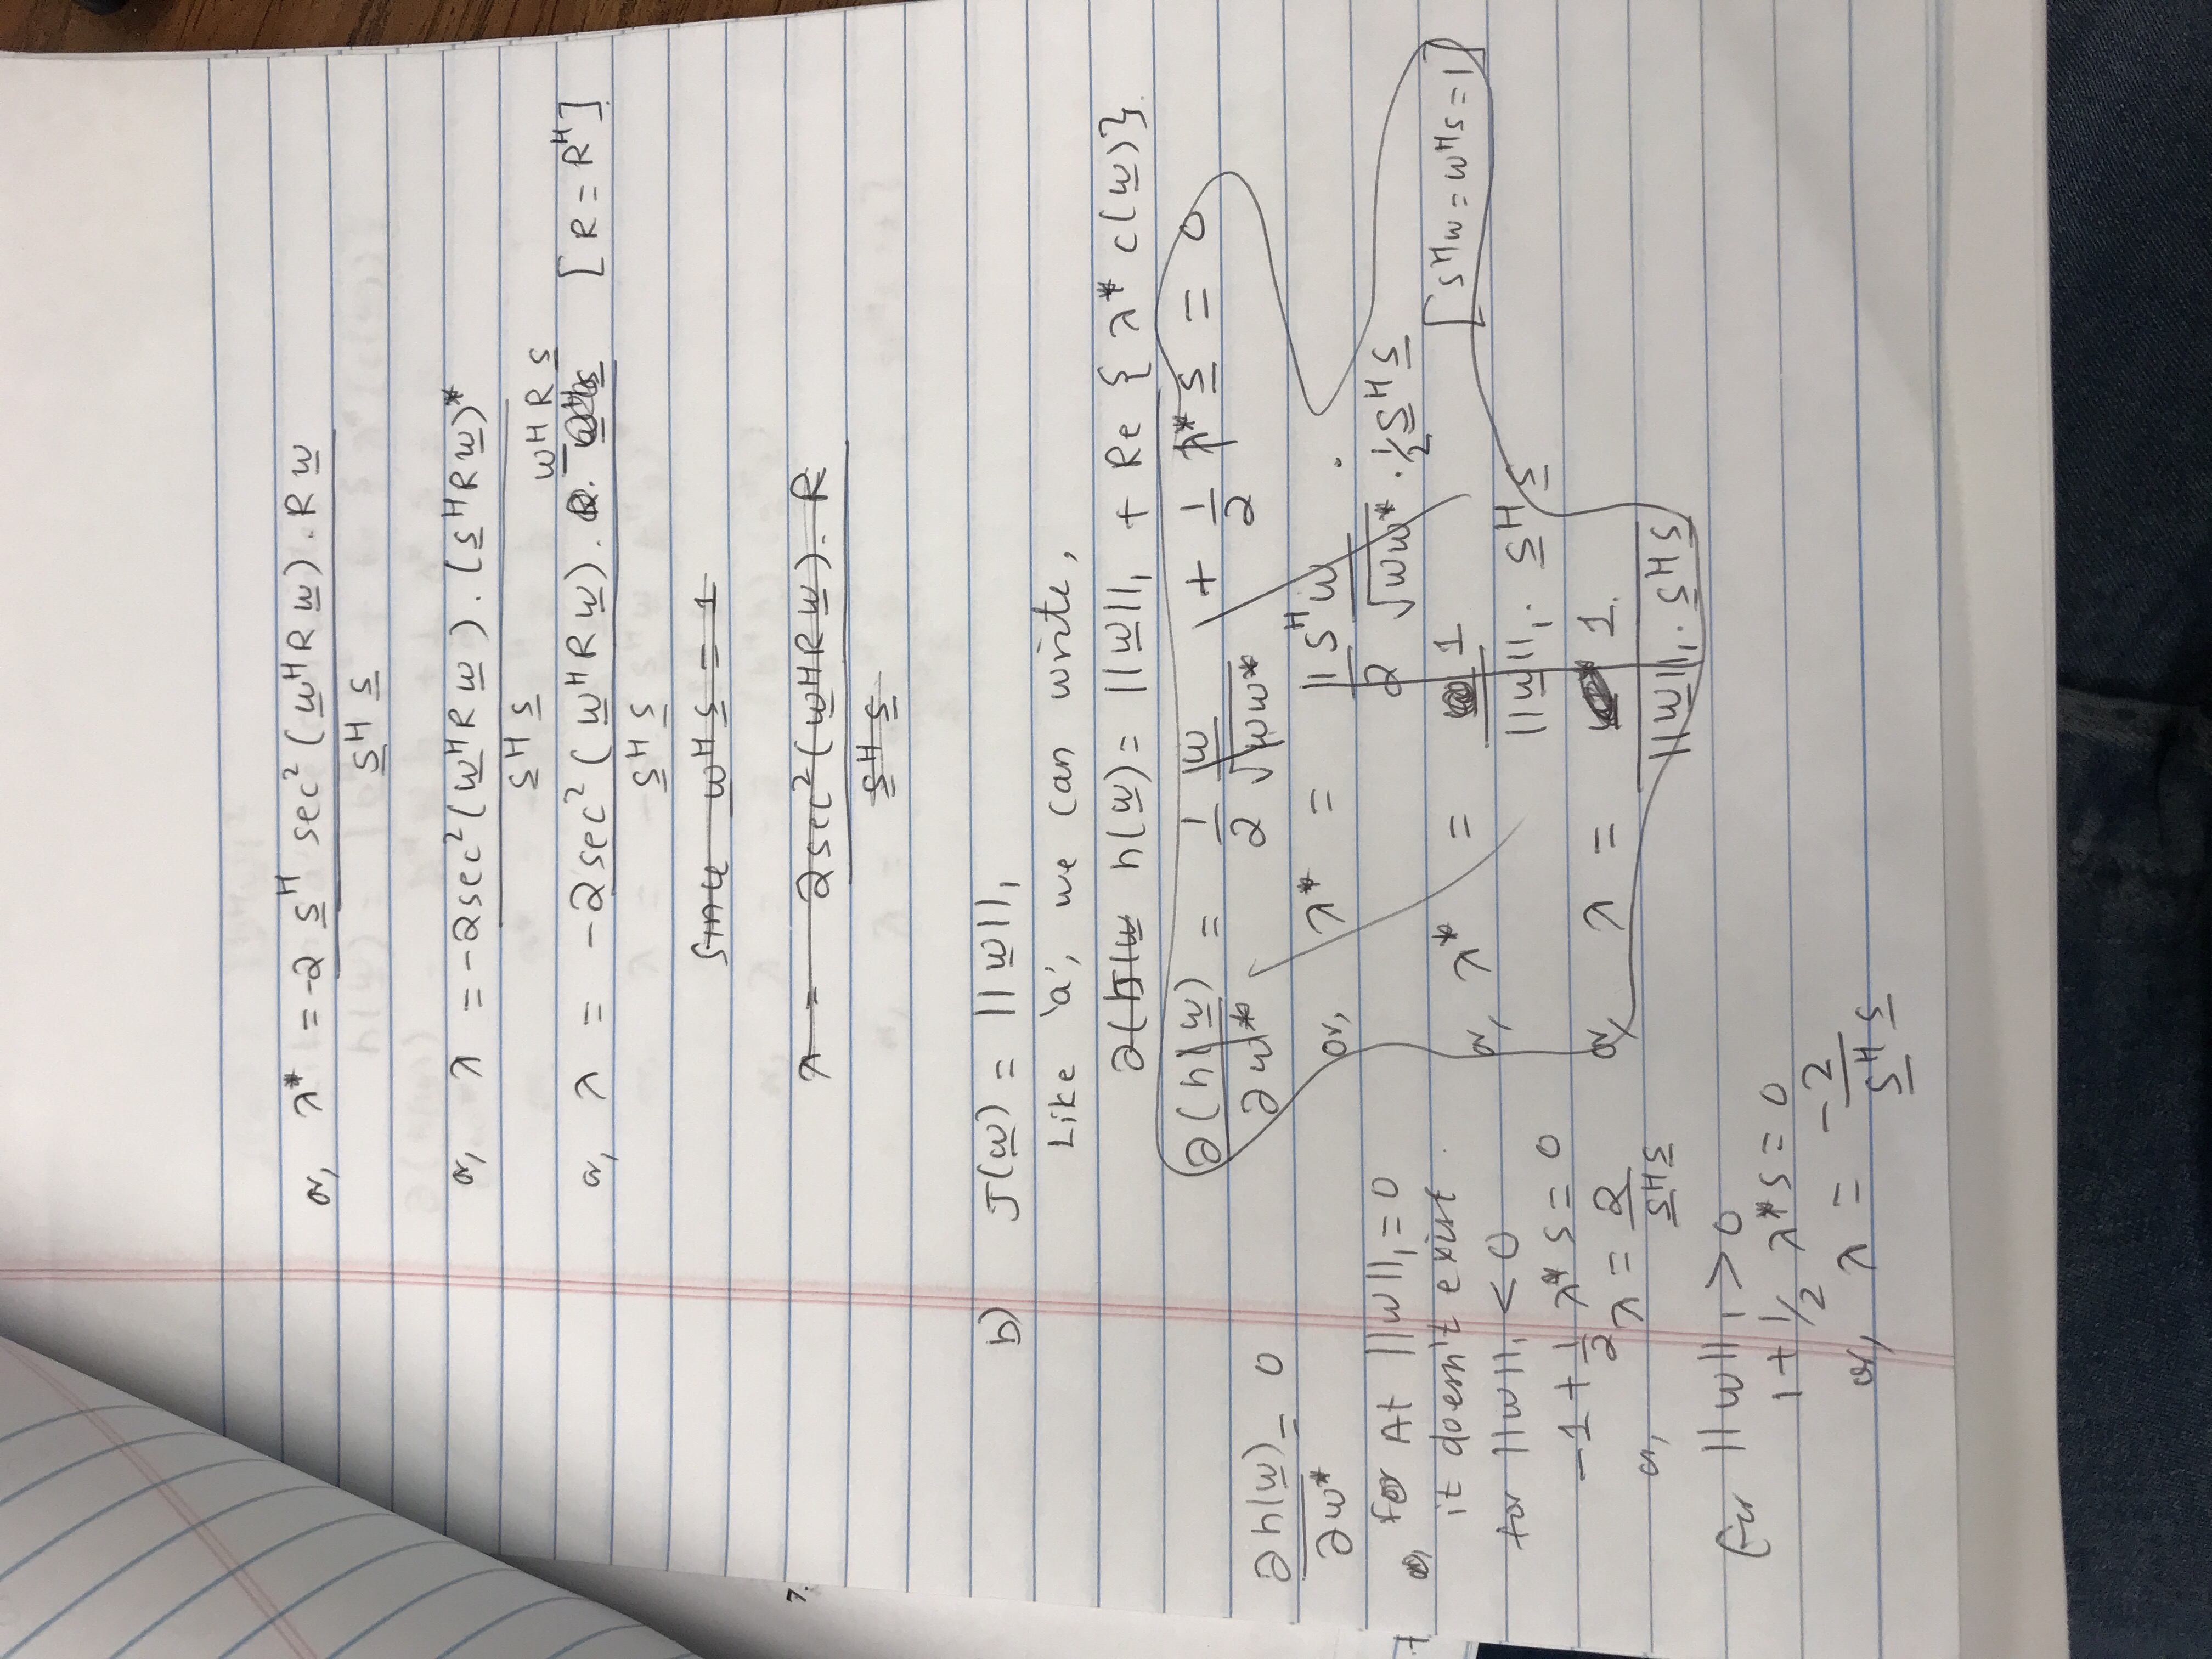 or, λ* = -2 s^H sec² (w^H R w) . R w / s^H s
or, λ = -2 sec² (w^H R w) . (s^H R w)* / s^H s
w^H R s
or, λ = -2 sec² (w^H R w) . [R = R^H]
s^H s
Since w^H s = 1
λ = 2 sec² (w^H R w) . R / s^H s
7.
b) J(w) = ||w||₁
Like 'a', we can write,
h(w) = ||w||₁ + Re { λ* c(w)}.
∂(h(w) / ∂w* = 1/2 w / √ww* + 1/2 λ* s = 0
or, λ* = 1/2 s^H w / √ww* . 1/2 s^H s
or, λ* = 1 / ||w||₁ . s^H s [s^H w = w^H s = 1]
or, λ = 1. / ||w||₁ . s^H s
∂h(w) / ∂w* = 0
For At ||w||₁ = 0
it doesn't exist.
for ||w||₁ < 0
-1 + 1/2 λ* s = 0
or, λ = 2 / s^H s
for ||w||₁ > 0
1 + 1/2 λ* s = 0
or, λ = -2 / s^H s